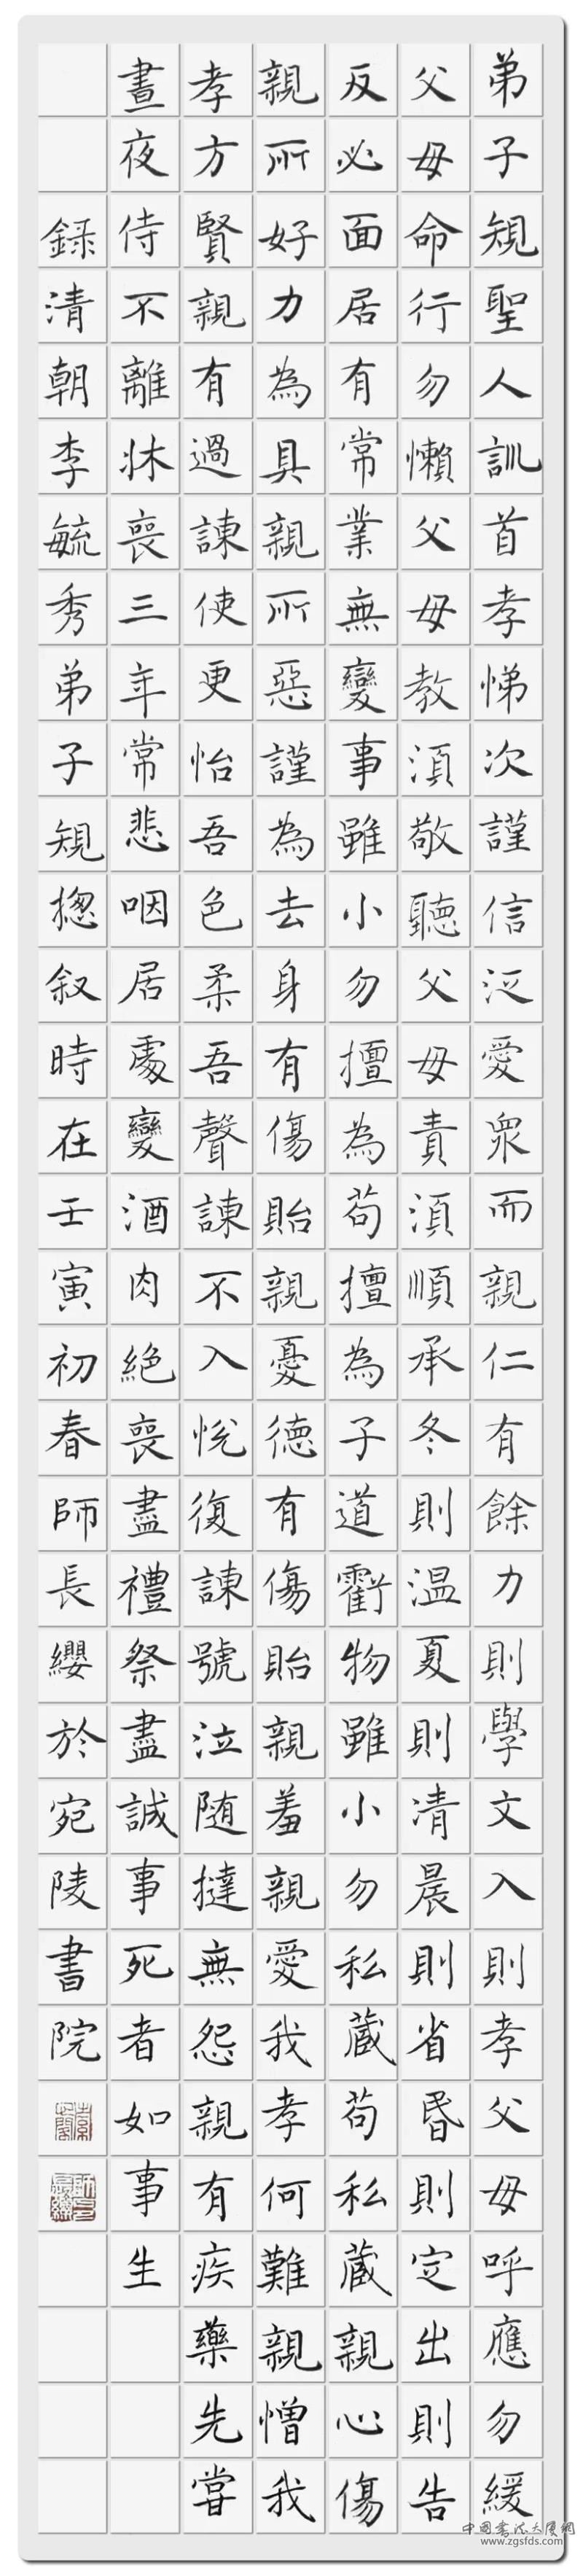 弟子規聖人訓首孝悌次謹信泛愛眾而親仁有餘力則學文入則孝父母呼應勿緩
父母命行勿懶父母教須敬聽父母責須順承冬則温夏則凊晨則省昏則定出則告
反必面居有常業無變事雖小勿擅為苟擅為子道虧物雖小勿私藏苟私藏親心傷
親所好力為具親所惡謹為去身有傷貽親憂德有傷貽親羞親愛我孝何難親憎我
孝方賢親有過諫使更怡吾色柔吾聲諫不入悅復諫號泣随撻無怨親有疾藥先甞
晝夜侍不離牀喪三年常悲咽居處變酒肉絕喪盡禮祭盡誠事死者如事生
録清朝李毓秀弟子規揔叙時在壬寅初春師長纓於宛陵書院
中國書法大廈網
www.zgsfds.com